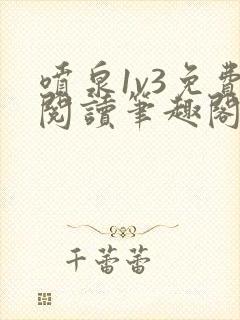 噴泉1v3免費
閱讀筆趣閣
千蕾蕾